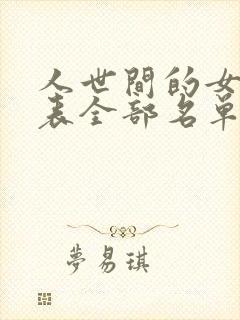 人世間的女
表全部名單
夢易琪